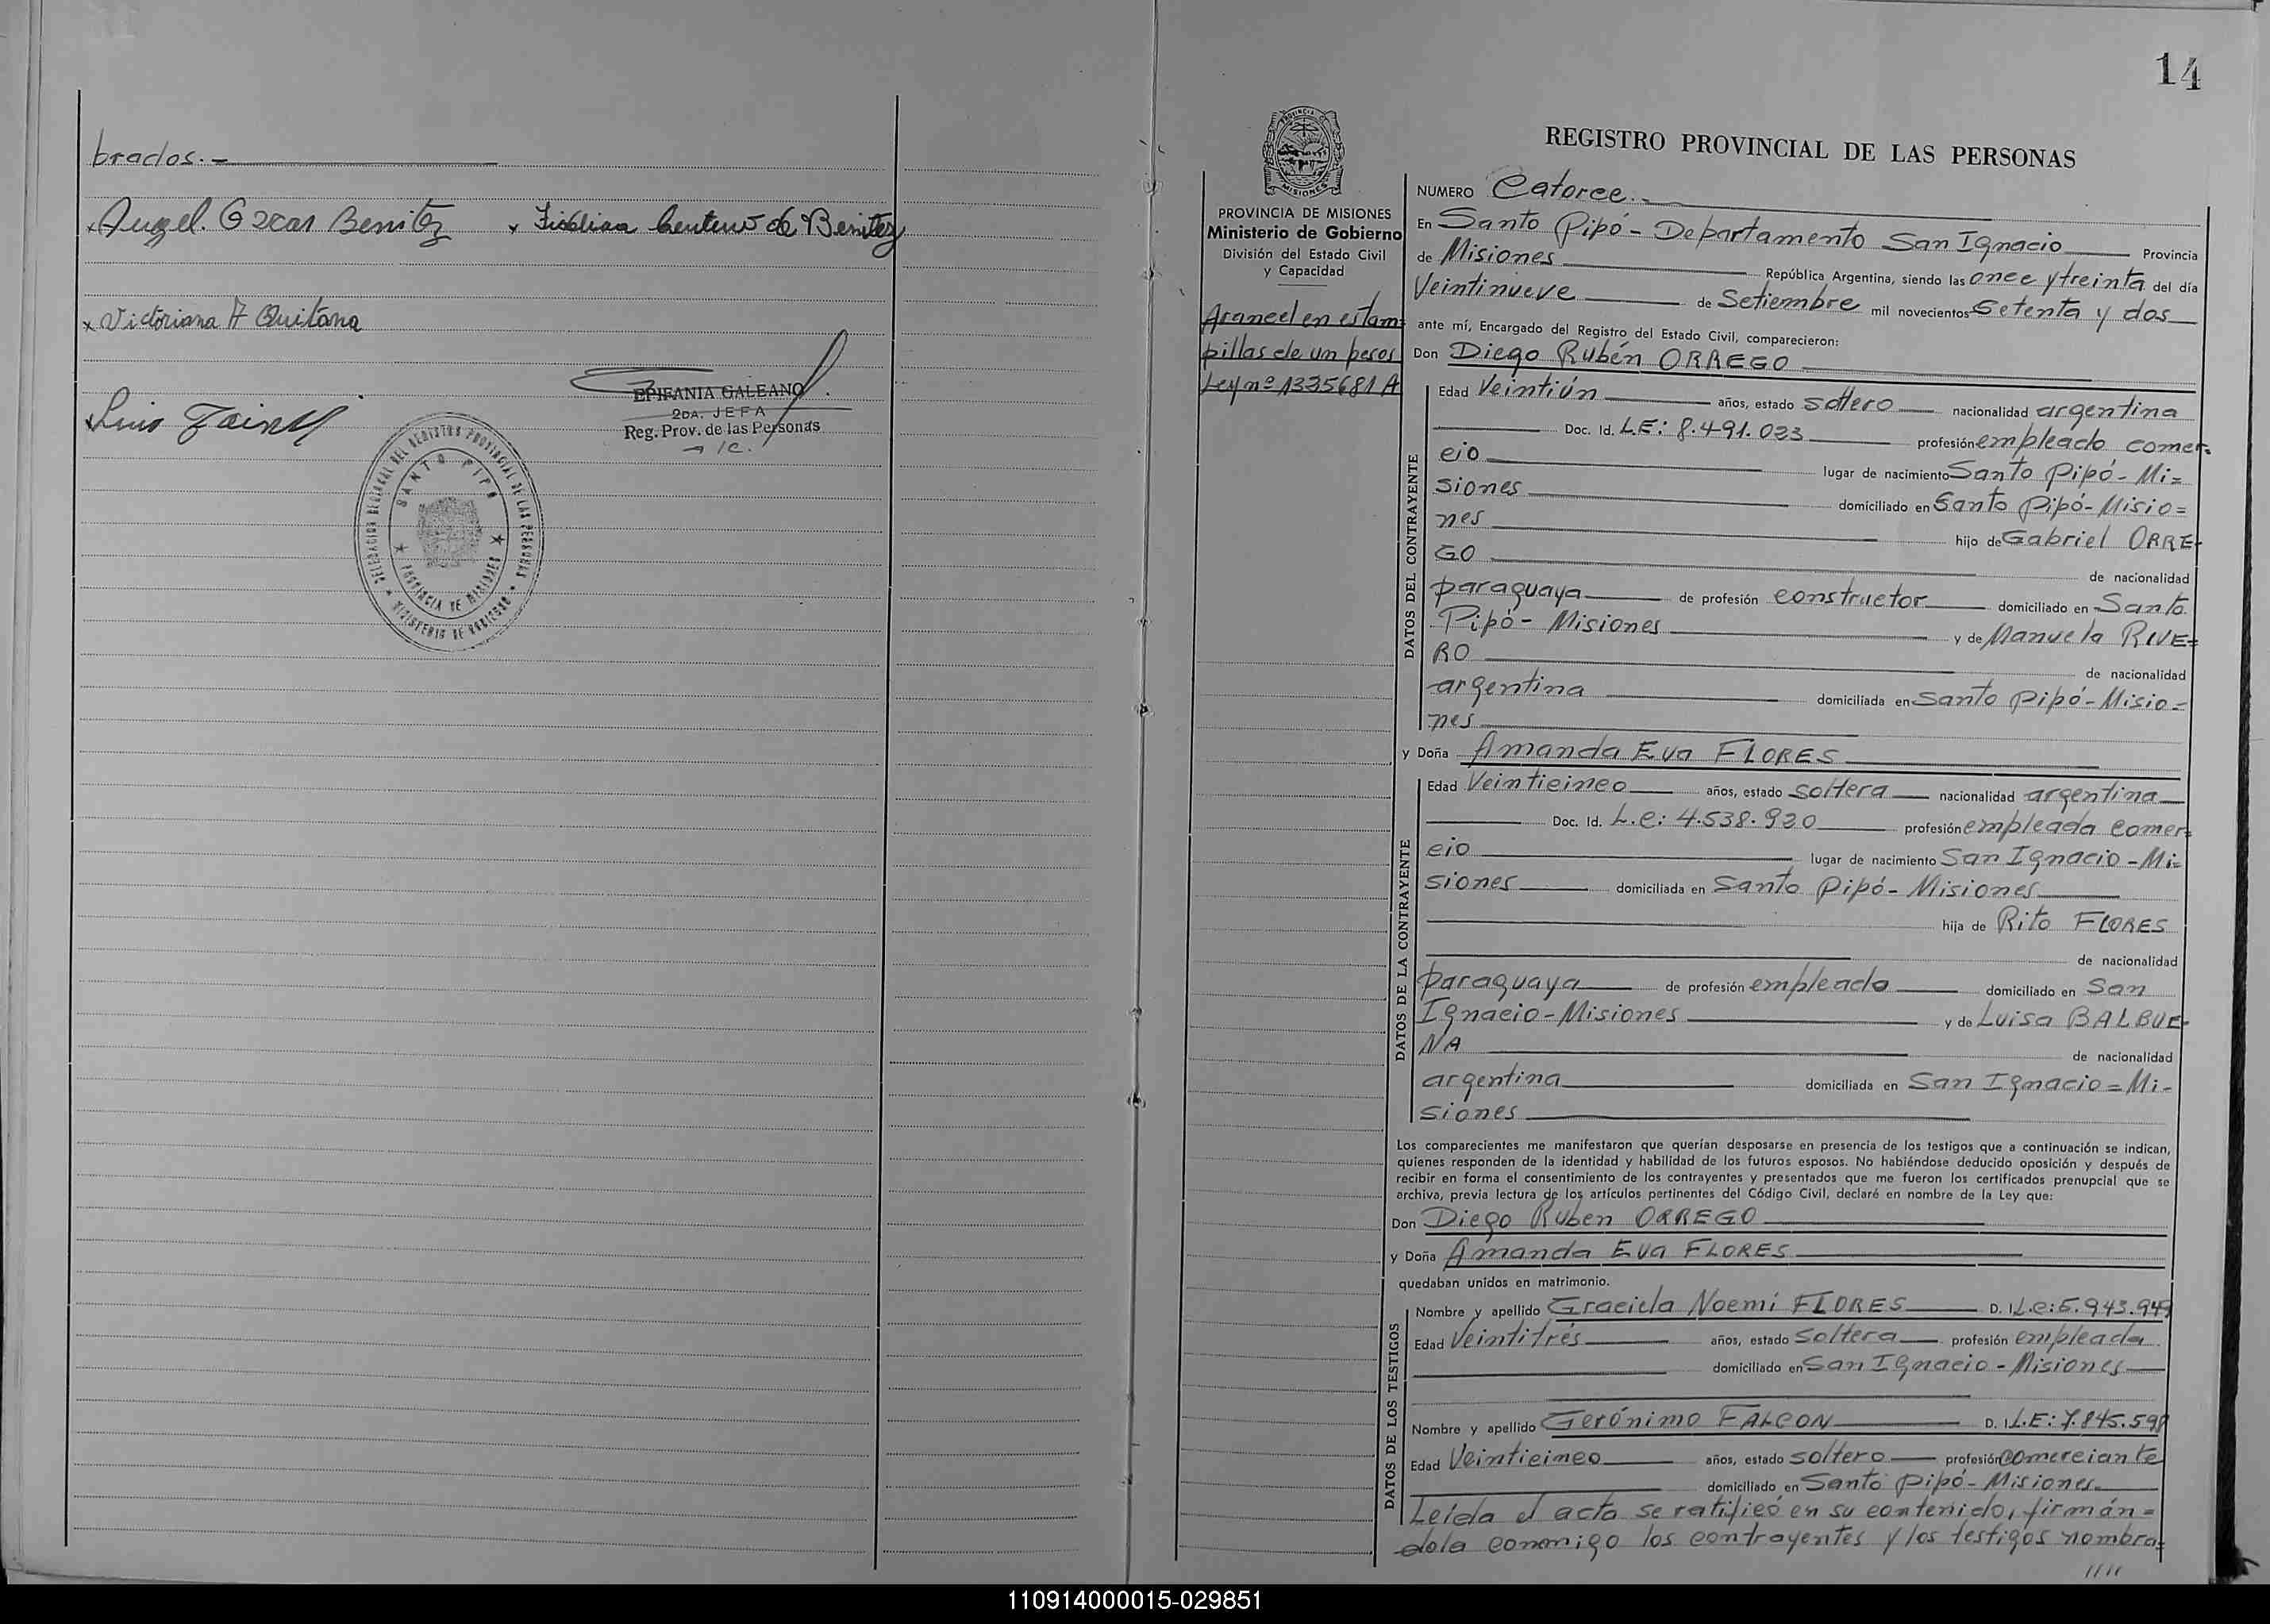 brados.-
Angel Oscar Benitez x Centeno de Benitez
x Victoriana A Quitana
Luis
EPIFANIA GALEANO
2DA. JEFA
Reg. Prov. de las Personas
DELEGACION REGIONAL DEL REGISTRO PROVINCIAL DE LAS PERSONAS
SANTO PIPO
PROVINCIA DE MISIONES
MINISTERIO DE GOBIERNO
14
PROVINCIA DE
MISIONES
PROVINCIA DE MISIONES
Ministerio de Gobierno
División del Estado Civil
y Capacidad
Arancel en estam=
pillas de un pesos
Ley nº 1335681 A
REGISTRO PROVINCIAL DE LAS PERSONAS
NUMERO Catorce.-
En Santo Pipó - Departamento San Ignacio Provincia
de Misiones República Argentina, siendo las once y treinta del día
Veintinueve de Setiembre mil novecientos Setenta y dos
ante mí, Encargado del Registro del Estado Civil, comparecieron:
Don Diego Rubén ORREGO
DATOS DEL CONTRAYENTE
Edad Veintiún años, estado soltero nacionalidad argentina
Doc. Id. L.E: 8.491.033 profesión empleado comer-
cio lugar de nacimiento Santo Pipó - Mi=
siones domiciliado en Santo Pipó - Misio=
nes hijo de Gabriel ORRE-
GO de nacionalidad
paraguaya de profesión constructor domiciliado en Santo
Pipó - Misiones y de Manuela RIVE=
RO de nacionalidad
argentina domiciliada en Santo Pipó - Misio=
nes
y Doña Amanda Eva FLORES
DATOS DE LA CONTRAYENTE
Edad Veinticinco años, estado soltera nacionalidad argentina
Doc. Id. L.C: 4.538.930 profesión empleada comer=
cio lugar de nacimiento San Ignacio - Mi=
siones domiciliada en Santo Pipó - Misiones
hija de Rito FLORES
de nacionalidad
paraguaya de profesión empleado domiciliado en San
Ignacio - Misiones y de Luisa BALBUE-
NA de nacionalidad
argentina domiciliada en San Ignacio = Mi-
siones
Los comparecientes me manifestaron que querían desposarse en presencia de los testigos que a continuación se indican,
quienes responden de la identidad y habilidad de los futuros esposos. No habiéndose deducido oposición y después de
recibir en forma el consentimiento de los contrayentes y presentados que me fueron los certificados prenupcial que se
archiva, previa lectura de los artículos pertinentes del Código Civil, declaré en nombre de la Ley que:
Don Diego Ruben ORREGO
y Doña Amanda Eva FLORES
quedaban unidos en matrimonio.
DATOS DE LOS TESTIGOS
Nombre y apellido Graciela Noemí FLORES D. I. L.C: 5.943.949
Edad Veintitrés años, estado soltera profesión empleada
domiciliado en San Ignacio - Misiones
Nombre y apellido Gerónimo FALCON D. I. L.E: 7.845.598
Edad Veinticinco años, estado soltero profesión comerciante
domiciliado en Santo Pipó - Misiones
Leída el acta se ratificó en su contenido, firmán=
dola conmigo los contrayentes y los testigos nombra=
////
110914000015-029851